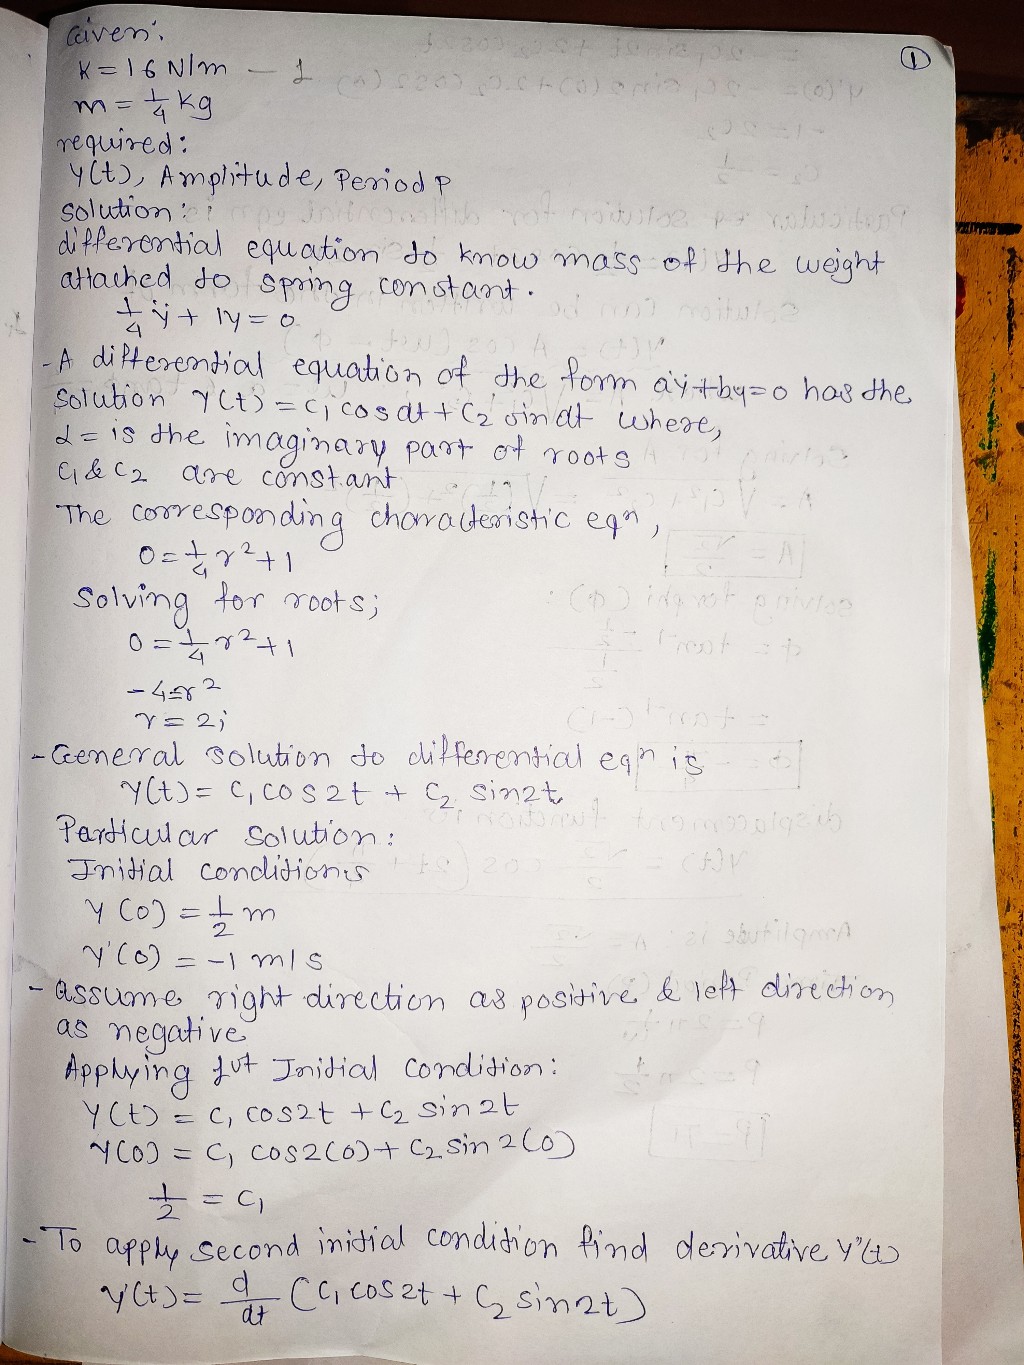 ①
Given:
K = 16 N/m – 1
m = 1/4 kg
required:
y(t), Amplitude, Period P
solution:
differential equation to know mass of the weight
attached to spring constant.
1/4 ÿ + 1y = 0
- A differential equation of the form aÿ+by=0 has the
solution y(t) = c₁ cos αt + c₂ sin αt where,
α = is the imaginary part of roots
c₁ & c₂ are constant
The corresponding characteristic eqn,
0 = 1/4 r² + 1
Solving for roots;
0 = 1/4 r² + 1
-4 = r²
r = 2i
- General solution to differential eqn is
y(t) = c₁ cos2t + c₂ sin2t
Particular solution:
Initial conditions
y(0) = 1/2 m
y'(0) = -1 m/s
- assume right direction as positive & left direction
as negative
Applying 1st Initial condition:
y(t) = c₁ cos2t + c₂ sin2t
y(0) = c₁ cos2(0) + c₂ sin2(0)
1/2 = c₁
- To apply second initial condition find derivative y'(t)
y'(t) = d/dt (c₁ cos2t + c₂ sin2t)